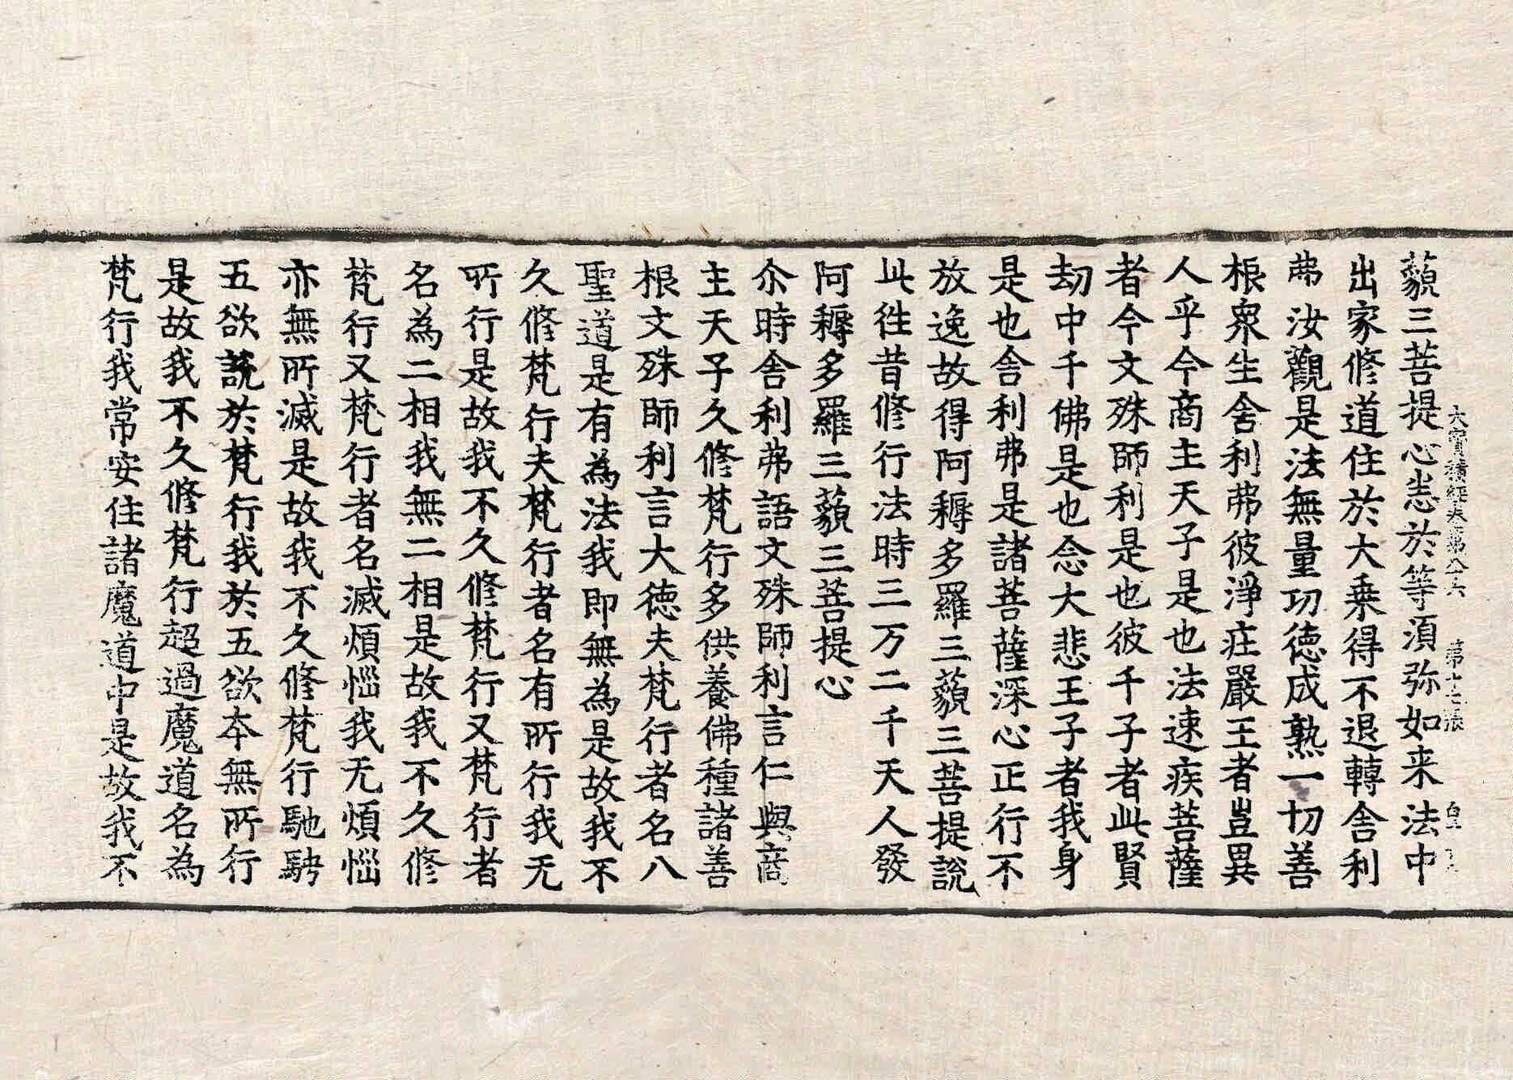 藐三菩提心悉於等湏弥如来法中
出家修道住於大乗得不退轉舍利
弗汝觀是法無量功徳成熟一切善
根衆生舍利弗彼淨庄嚴王者豈異
人乎今商主天子是也法速疾菩薩
者今文殊師利是也彼千子者此賢
劫中千佛是也念大悲王子者我身
是也舍利弗是諸菩薩深心正行不
放逸故得阿耨多羅三藐三菩提說
此徃昔修行法時三万二千天人發
阿耨多羅三藐三菩提心
尒時舍利弗語文殊師利言仁與商
主天子久修梵行多供養佛種諸善
根文殊師利言大徳夫梵行者名八
聖道是有為法我即無為是故我不
久修梵行夫梵行者名有所行我无
所行是故我不久修梵行又梵行者
名為二相我無二相是故我不久修
梵行又梵行者名滅煩惱我无煩惱
亦無所滅是故我不久修梵行馳騁
五欲說於梵行我於五欲本無所行
是故我不久修梵行超過魔道名為
梵行我常安住諸魔道中是故我不